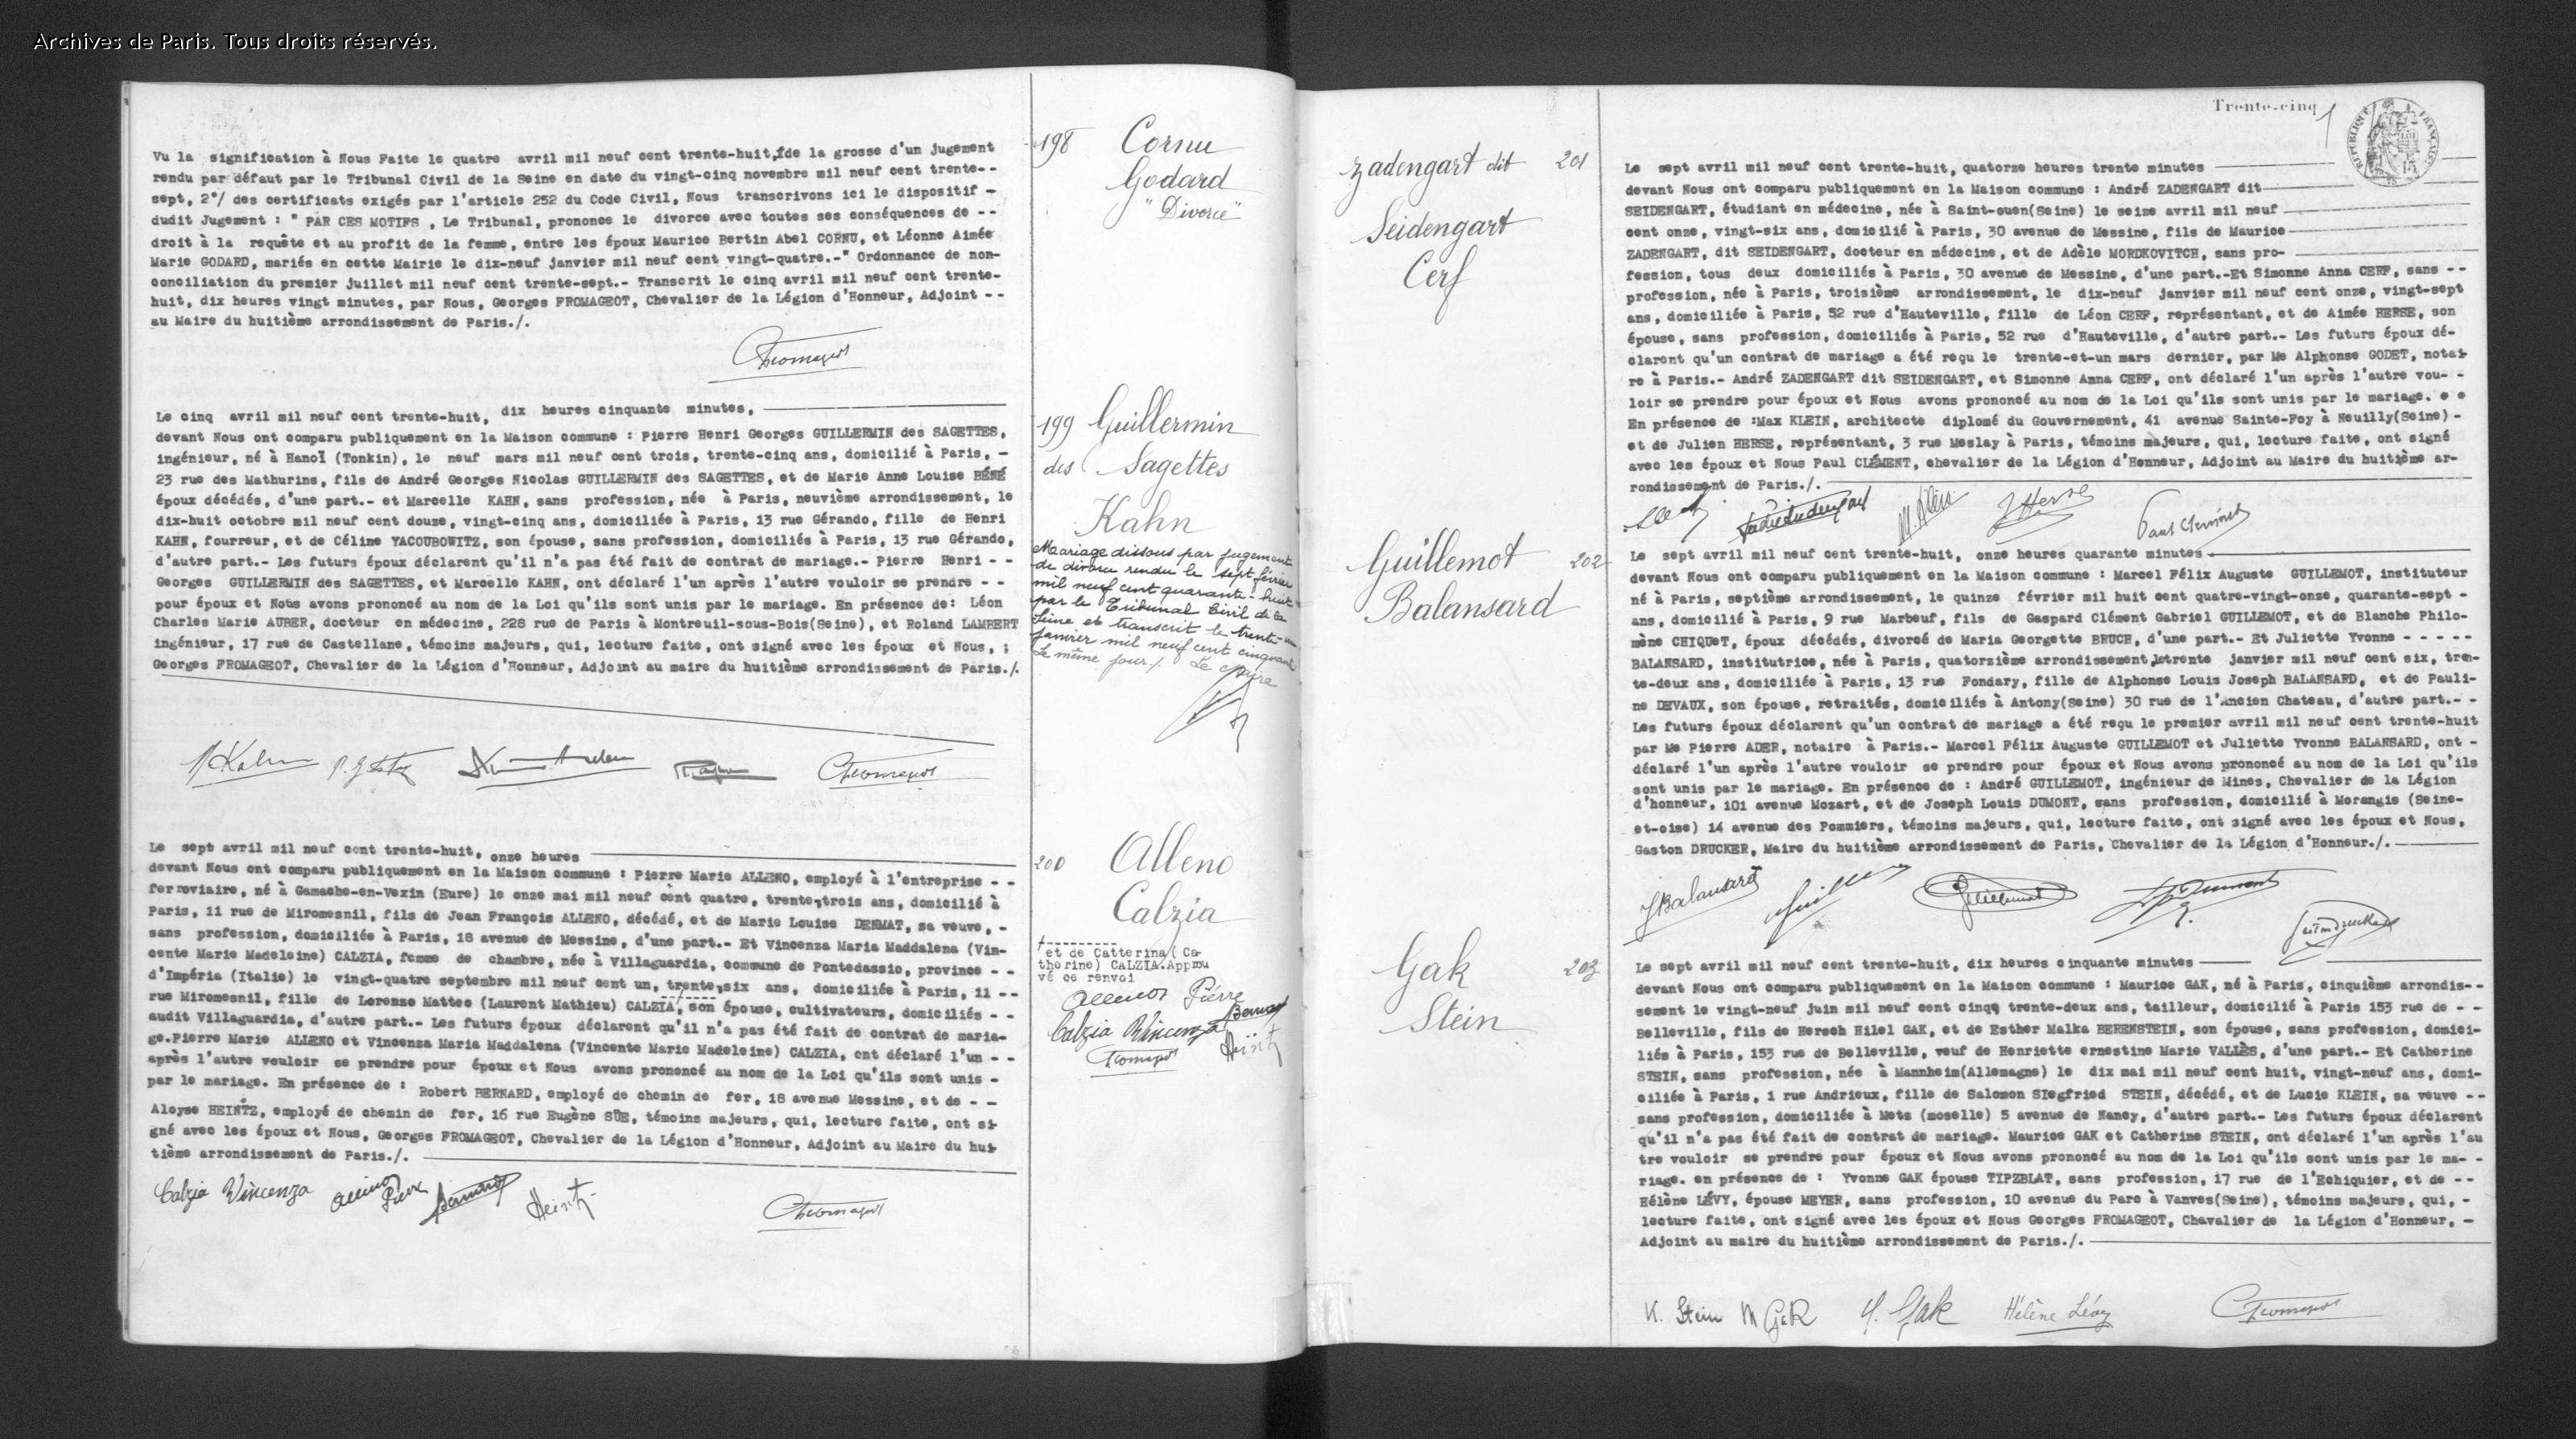 Archives de Paris. Tous droits réservés.
Vu la signification à Nous Faite le quatre avril mil neuf cent trente-huit,1°de la grosse d'un jugement
rendu par défaut par le Tribunal Civil de la Seine en date du vingt-cinq novembre mil neuf cent trente--
sept, 2°/ des certificats exigés par l'article 252 du Code Civil, Nous transcrivons ici le dispositif -
dudit Jugement : " PAR CES MOTIFS , Le Tribunal, prononce le divorce avec toutes ses conséquences de --
droit à la requête et au profit de la femme, entre les époux Maurice Bertin Abel CORNU, et Léonne Aimée
Marie GODARD, mariés en cette Mairie le dix-neuf janvier mil neuf cent vingt-quatre.-" Ordonnance de non-
conciliation du premier juillet mil neuf cent trente-sept.- Transcrit le cinq avril mil neuf cent trente-
huit, dix heures vingt minutes, par Nous, Georges FROMAGEOT, Chevalier de la Légion d'Honneur, Adjoint --
au Maire du huitième arrondissement de Paris./.
Fromageot
198 Cornu
Godard
"Divorce"
Le cinq avril mil neuf cent trente-huit, dix heures cinquante minutes,
devant Nous ont comparu publiquement en la Maison commune : Pierre Henri Georges GUILLERMIN des SAGETTES,
ingénieur, né à Hanoï (Tonkin), le neuf mars mil neuf cent trois, trente-cinq ans, domicilié à Paris, -
23 rue des Mathurins, fils de André Georges Nicolas GUILLERMIN des SAGETTES, et de Marie Anne Louise BÉNÉ
époux décédés, d'une part.- et Marcelle KAHN, sans profession, née à Paris, neuvième arrondissement, le
dix-huit octobre mil neuf cent douze, vingt-cinq ans, domiciliée à Paris, 13 rue Gérando, fille de Henri
KAHN, fourreur, et de Céline YACOUBOWITZ, son épouse, sans profession, domiciliés à Paris, 13 rue Gérando,
d'autre part.- Les futurs époux déclarent qu'il n'a pas été fait de contrat de mariage.- Pierre Henri - -
Georges GUILLERMIN des SAGETTES, et Marcelle KAHN, ont déclaré l'un après l'autre vouloir se prendre - -
pour époux et Nous avons prononcé au nom de la Loi qu'ils sont unis par le mariage. En présence de: Léon
Charles Marie AUBER, docteur en médecine, 228 rue de Paris à Montreuil-sous-Bois(Seine), et Roland LAMBERT
ingénieur, 17 rue de Castellane, témoins majeurs, qui, lecture faite, ont signé avec les époux et Nous, ;
Georges FROMAGEOT, Chevalier de la Légion d'Honneur, Adjoint au maire du huitième arrondissement de Paris./.
M Kahn
Fromageot
199 Guillermin
des Sagettes
Kahn
Mariage dissous par jugement
de divorce rendu le sept février
mil neuf cent quarante-huit
par le Tribunal Civil de la
Seine et transcrit le trente-un
janvier mil neuf cent cinquante
Le même jour./. Le Maire
Le sept avril mil neuf cent trente-huit, onze heures
devant Nous ont comparu publiquement en la Maison commune : Pierre Marie ALLENO, employé à l'entreprise - -
ferroviaire, né à Gamache-en-Vexin (Eure) le onze mai mil neuf cent quatre, trente-trois ans, domicilié à
Paris, 11 rue de Miromesnil, fils de Jean François ALLENO, décédé, et de Marie Louise DENMAT, sa veuve, -
sans profession, domiciliée à Paris, 18 avenue de Messine, d'une part.- Et Vincenza Maria Maddalena (Vin-
cente Marie Madeleine) CALZIA, femme de chambre, née à Villaguardia, commune de Pontedassio, province - -
d'Impéria (Italie) le vingt-quatre septembre mil neuf cent un, trente-six ans, domiciliée à Paris, 11 --
rue Miromesnil, fille de Lorenzo Matteo (Laurent Mathieu) CALZIA, son épouse, cultivateurs, domiciliés - -
audit Villaguardia, d'autre part.- Les futurs époux déclarent qu'il n'a pas été fait de contrat de maria-
ge.Pierre Marie ALLENO et Vincenza Maria Maddalena (Vincente Marie Madeleine) CALZIA, ont déclaré l'un - -
après l'autre vouloir se prendre pour époux et Nous avons prononcé au nom de la Loi qu'ils sont unis -
par le mariage. En présence de : Robert BERNARD, employé de chemin de fer, 18 avenue Messine, et de - -
Aloyse HEINTZ, employé de chemin de fer, 16 rue Eugène SÜE, témoins majeurs, qui, lecture faite, ont si-
gné avec les époux et Nous, Georges FROMAGEOT, Chevalier de la Légion d'Honneur, Adjoint au Maire du hui-
tième arrondissement de Paris./.
Calzia Vincenza Alleno Pierre Bernard Heintz Fromageot
200 Alleno
Calzia
et de Catterina( Ca-
therine) CALZIA.Approu
vé ce renvoi
Alleno Pierre
Calzia Vincenza Bernard
Fromageot Heintz
Zadengart dit 201
Seidengart
Cerf
Trente-cinq
RÉPUBLIQUE FRANÇAISE
Le sept avril mil neuf cent trente-huit, quatorze heures trente minutes
devant Nous ont comparu publiquement en la Maison commune : André ZADENGART dit
SEIDENGART, étudiant en médecine, née à Saint-ouen(Seine) le seize avril mil neuf
cent onze, vingt-six ans, domicilié à Paris, 30 avenue de Messine, fils de Maurice
ZADENGART, dit SEIDENGART, docteur en médecine, et de Adèle MORDKOVITCH, sans pro-
fession, tous deux domiciliés à Paris, 30 avenue de Messine, d'une part.-Et Simonne Anna CERF, sans --
profession, née à Paris, troisième arrondissement, le dix-neuf janvier mil neuf cent onze, vingt-sept
ans, domiciliée à Paris, 52 rue d'Hauteville, fille de Léon CERF, représentant, et de Aimée HERSE, son
épouse, sans profession, domiciliés à Paris, 52 rue d'Hauteville, d'autre part.- Les futurs époux dé-
clarent qu'un contrat de mariage a été reçu le trente-et-un mars dernier, par Me Alphonse GODET, notai-
re à Paris.- André ZADENGART dit SEIDENGART, et Simonne Anna CERF, ont déclaré l'un après l'autre vou- -
loir se prendre pour époux et Nous avons prononcé au nom de la Loi qu'ils sont unis par le mariage.
En présence de :Max KLEIN, architecte diplomé du Gouvernement, 41 avenue Sainte-Foy à Neuilly(Seine) -
et de Julien HERSE, représentant, 3 rue Meslay à Paris, témoins majeurs, qui, lecture faite, ont signé
avec les époux et Nous Paul CLÉMENT, chevalier de la Légion d'Honneur, Adjoint au Maire du huitième ar-
rondissement de Paris./.
J Herse Paul Clément
Guillemot 202
Balansard
Le sept avril mil neuf cent trente-huit, onze heures quarante minutes
devant Nous ont comparu publiquement en la Maison commune : Marcel Félix Auguste GUILLEMOT, instituteur
né à Paris, septième arrondissement, le quinze février mil huit cent quatre-vingt-onze, quarante-sept -
ans, domicilié à Paris, 9 rue Marbeuf, fils de Gaspard Clément Gabriel GUILLEMOT, et de Blanche Philo-
mène CHIQUeT, époux décédés, divorcé de Maria Georgette BRUCH, d'une part.- Et Juliette Yvonne - - - - -
BALANSARD, institutrice, née à Paris, quatorzième arrondissement,letrente janvier mil neuf cent six, tren-
te-deux ans, domiciliée à Paris, 13 rue Fondary, fille de Alphonse Louis Joseph BALANSARD, et de Pauli-
ne DEVAUX, son épouse, retraités, domiciliés à Antony(Seine) 30 rue de l'Ancien Chateau, d'autre part.- -
Les futurs époux déclarent qu'un contrat de mariage a été reçu le premier avril mil neuf cent trente-huit
par Me Pierre ADER, notaire à Paris.- Marcel Félix Auguste GUILLEMOT et Juliette Yvonne BALANSARD, ont -
déclaré l'un après l'autre vouloir se prendre pour époux et Nous avons prononcé au nom de la Loi qu'ils
sont unis par le mariage. En présence de : André GUILLEMOT, ingénieur de Mines, Chevalier de la Légion
d'honneur, 101 avenue Mozart, et de Joseph Louis DUMONT, sans profession, domicilié à Morangis (Seine-
et-oise) 14 avenue des Pommiers, témoins majeurs, qui, lecture faite, ont signé avec les époux et Nous,
Gaston DRUCKER, Maire du huitième arrondissement de Paris, Chevalier de la Légion d'Honneur./.
JBalansard Guillemot Dumont
Gaston Drucker
Gak 203
Stein
Le sept avril mil neuf cent trente-huit, dix heures cinquante minutes
devant Nous ont comparu publiquement en la Maison commune : Maurice GAK, né à Paris, cinquième arrondis--
sement le vingt-neuf juin mil neuf cent cinq, trente-deux ans, tailleur, domicilié à Paris 153 rue de - -
Belleville, fils de Hersch Hilel GAK, et de Esther Malka BERENSTEIN, son épouse, sans profession, domici-
liés à Paris, 153 rue de Belleville, veuf de Henriette ernestine Marie VALLÈS, d'une part.- Et Catherine
STEIN, sans profession, née à Mannheim(Allemagne) le dix mai mil neuf cent huit, vingt-neuf ans, domi-
ciliée à Paris, 1 rue Andrieux, fille de Salomon SIegfried STEIN, décédé, et de Lucie KLEIN, sa veuve --
sans profession, domiciliée à Metz (moselle) 5 avenue de Nancy, d'autre part.- Les futurs époux déclarent
qu'il n'a pas été fait de contrat de mariage. Maurice GAK et Catherine STEIN, ont déclaré l'un après l'au
tre vouloir se prendre pour époux et Nous avons prononcé au nom de la Loi qu'ils sont unis par le ma- -
riage. en présence de : Yvonne GAK épouse TIPZBLAT, sans profession, 17 rue de l'Echiquier, et de --
Hélène LÉVY, épouse MEYER, sans profession, 10 avenue du Parc à Vanves(Seine), témoins majeurs, qui, -
lecture faite, ont signé avec les époux et Nous Georges FROMAGEOT, Chevalier de la Légion d'Honneur, -
Adjoint au maire du huitième arrondissement de Paris./.
K. Stein M Gak Y. Gak Hélène Lévy Fromageot